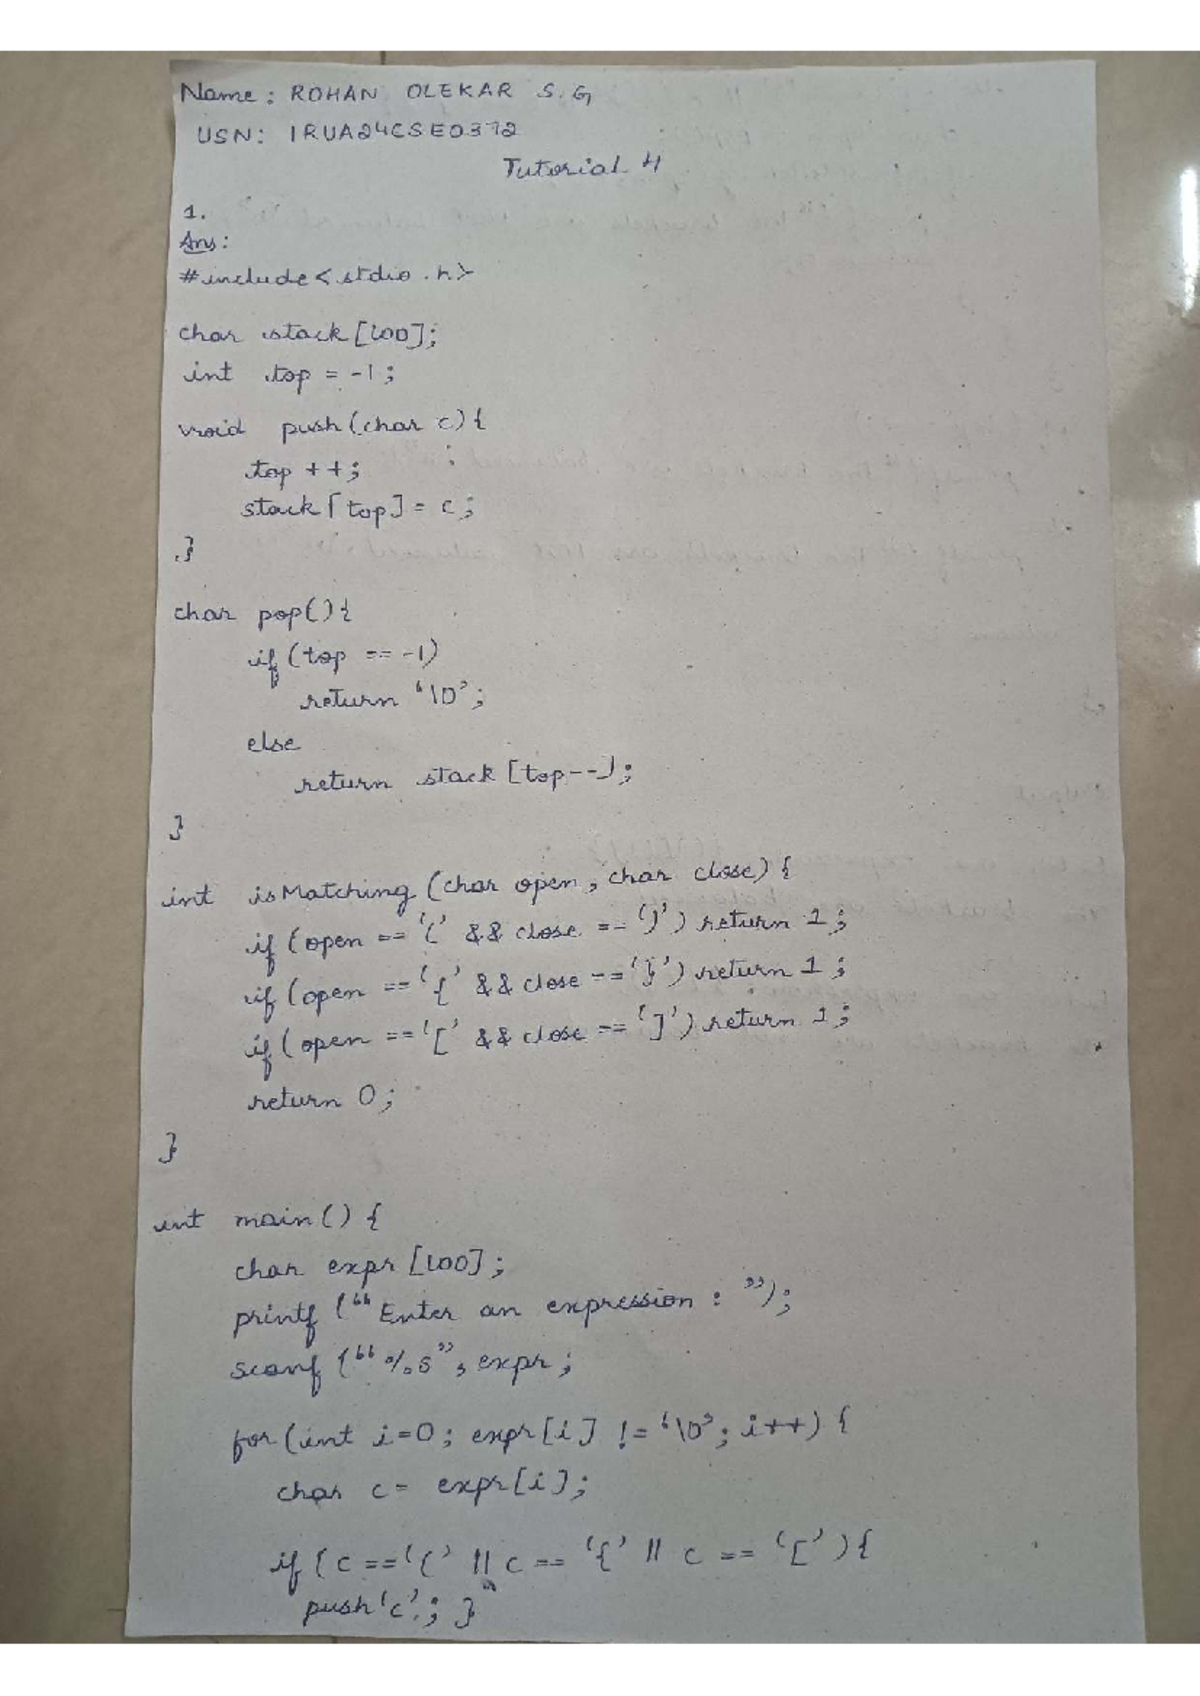 Name: ROHAN OLEKAR S.G
USN: 1RUA24CSE0372
Tutorial 4
1.
Ans:
#include<stdio.h>
char stack[100];
int top = -1;
void push(char c){
top ++;
stack[top] = c;
}
char pop(){
if (top == -1)
return '\0';
else
return stack [top--];
}
int isMatching (char open, char close) {
if (open == '(' && close == ')') return 1;
if (open == '{' && close == '}') return 1;
if (open == '[' && close == ']') return 1;
return 0;
}
int main() {
char expr [100];
printf ("Enter an expression : ");
scanf ("%s", expr;
for (int i=0; expr[i] != '\0'; i++) {
char c = expr[i];
if (c == '(' || c == '{' || c == '[') {
push 'c'; }